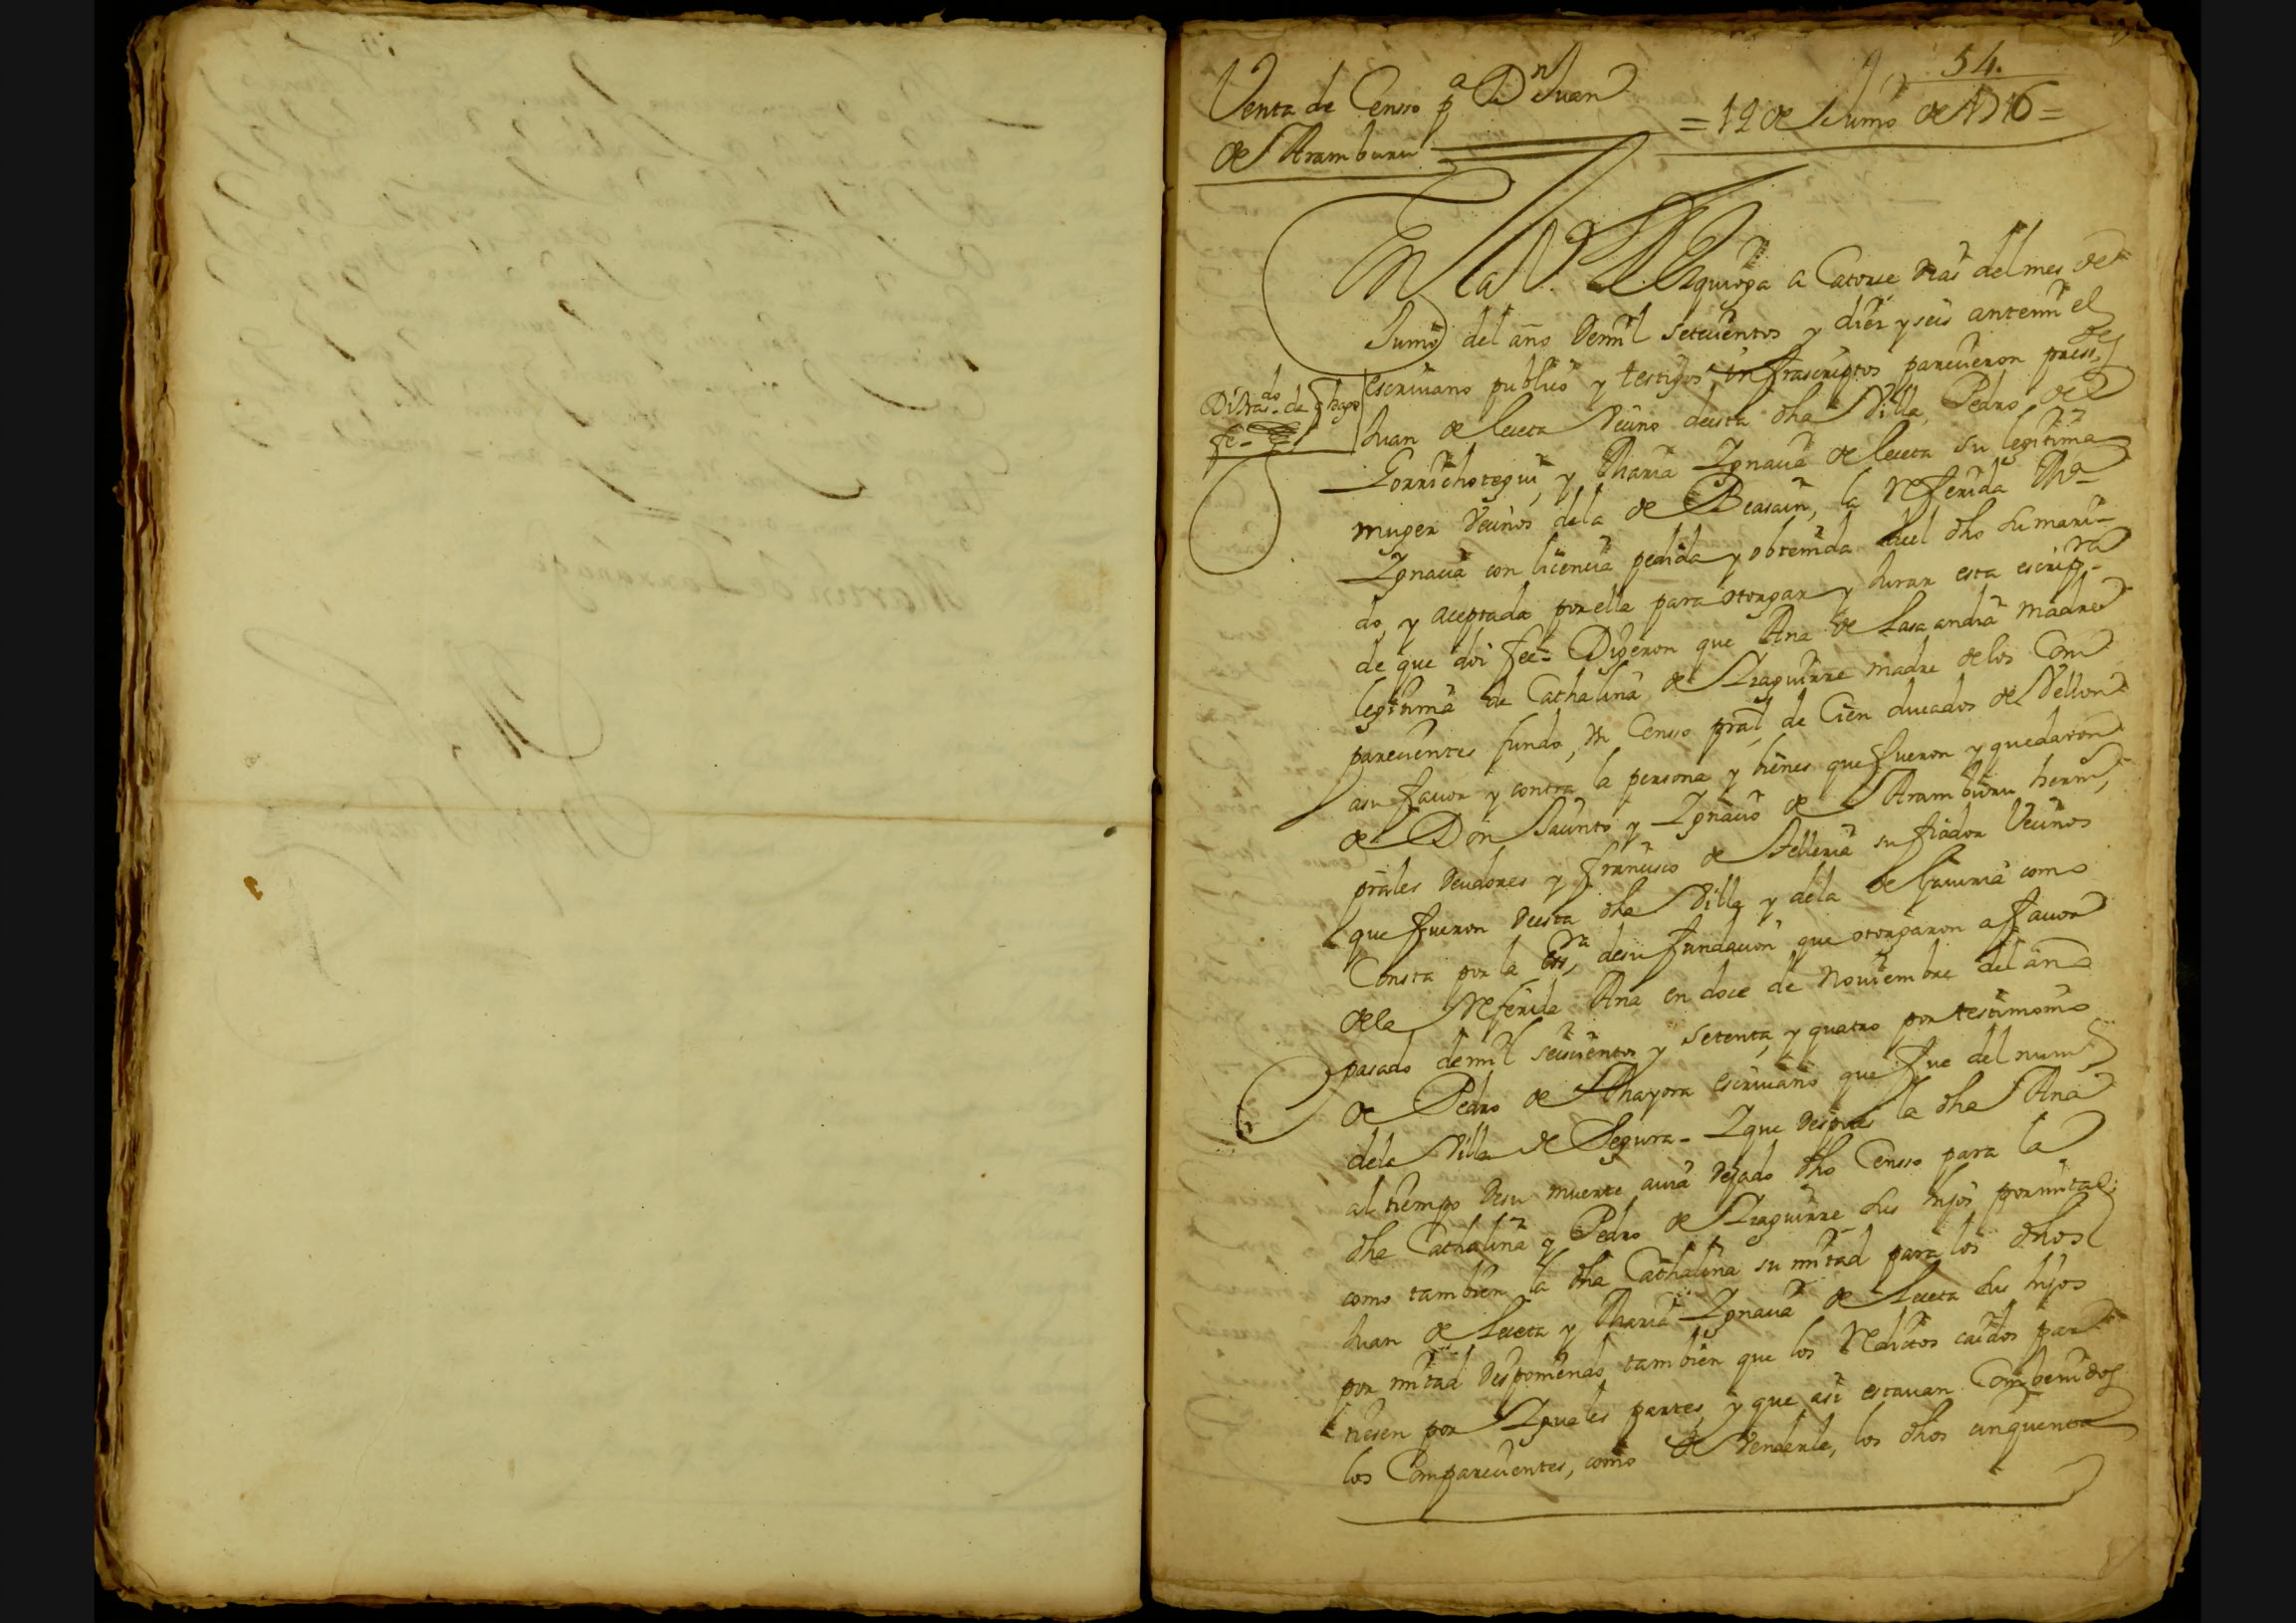 54.
Venta de Censo pa Dn Juan
= 12 de Junio de 1716 =
de Aramburu
En la V. de Azquioga a Catorse dias del mes de
Junio del año de mil setecientos y diez y seis antemi el
escrivano publico y testigos infrascriptos parecieron press,tes
Distrasdo. de q hago
fe -
Juan de Leceta Vecino de esta dha Villa, Pedro de
Gorrichotegui, y Maria Ygnacia de Leceta su legitima
muger vecinos de la de Beasain, la referida Ma
Ygnacia con licencia pedida y obtenida del dho su mari-
do, y aceptada por ella para otorgar y Jurar esta escripra
de que doi fee - Digeron que Ana de Lasa andia madre
legitima de Cathalina de Yzaguirre madre de los Com
parecientes fundo, un Censo pral, de Cien ducados de Vellon
a su favor y contra la persona y bienes que fueron y quedaron
de Don Jacinto y Ygnacio de Aramburu herms,
prales deudores y francisco de Telleria su fiador Vecinos
que fueron de esta dha Villa y de la de Gaviria como
Consta por la Essra, de su fundacion que otorgaron a favor
de la referida Ana en doce de Noviembre del año
pasado de mil seiscientos y setenta y quatro por testimonio
de Pedro de Mayora escrivano que fue del num,o
de la Villa de Segura - Y que despues la dha Ana
al tiempo de su muerte avia dejado dho Censo para la
dha Cathalina y Pedro de Yzaguirre sus hijos por mitad;
como tambien la dha Cathalina su mitad para los dhos
Juan de Leceta y Maria Ygnacia de Leceta sus hijos
por mitad disponiendo tambien que los reditos caidos par
tiesen por Yguales partes, y que asi estavan Combenidos
los Comparecientes, como de Venderle, los dhos cinquenta